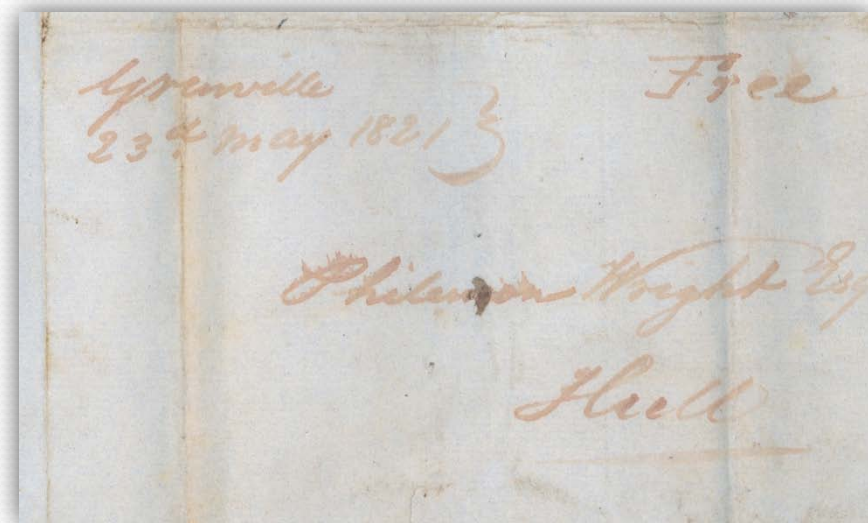 Grenville
23d. may 1821
Free
Philemon Wright Esq
Hull